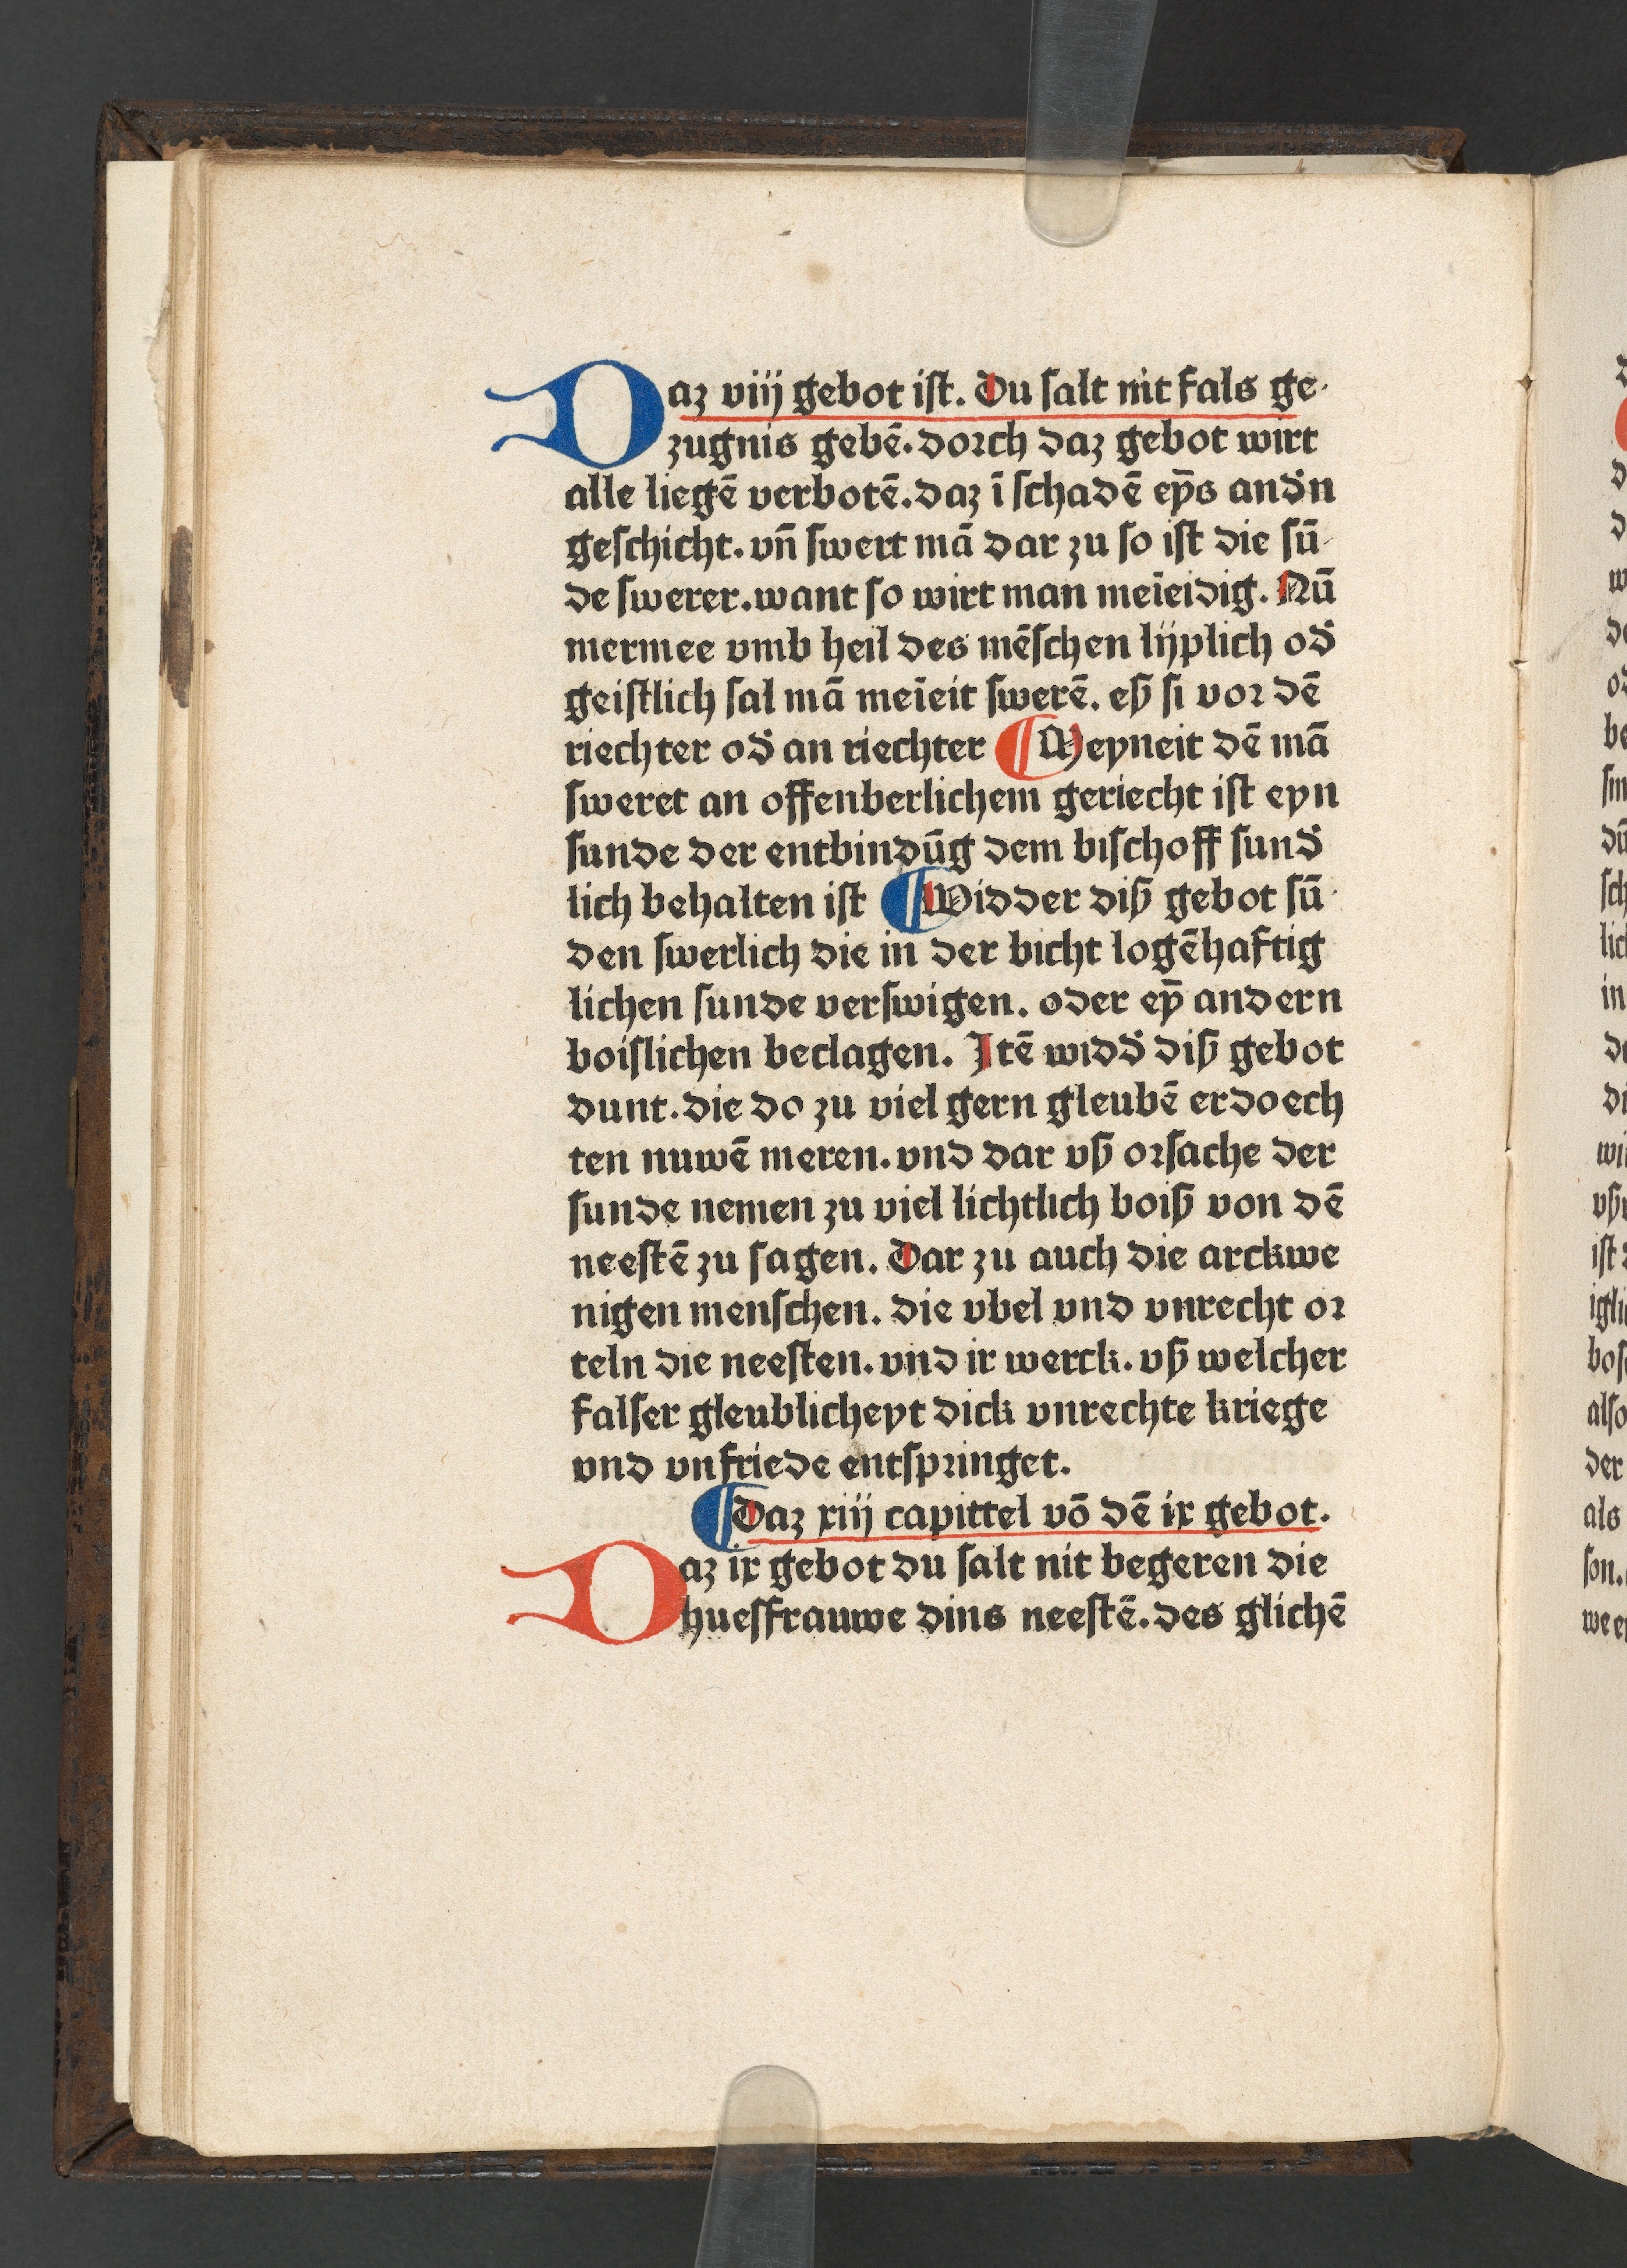 Daz viij gebot iſt. Du ſalt nit fals ge-
zugnis gebē. dorch daz gebot wirt
alle liegē verbotē. daz ī ſchadē eyn̄s and̄n
geſchicht. vn̄ ſwert mā dar zu ſo iſt die ſū-
de ſwerer. want ſo wirt man meīeidig. Nū
mermee vmb heil des mēſchen lijplich od̄
geiſtlich ſal mā meīeit ſwerē. eſʒ ſi vor dē
riechter od̄ an riechter ¶ Meyneit dē mā
ſweret an offenberlichem geriecht iſt eyn
ſunde der entbindūg dem biſchoff ſund̄
lich behalten iſt ¶ Widder diſʒ gebot ſū-
den ſwerlich die in der bicht logēhaftig
lichen ſunde verſwigen. oder eȳ andern
boiſlichen beclagen. Itē widd̄ diſʒ gebot
dunt. die do zu viel gern gleubē erdoech
ten nuwē meren. vnd dar vſʒ orſache der
ſunde nemen zu viel lichtlich boiſʒ von dē
neeſtē zu ſagen. Dar zu auch die arckwe
nigen menſchen. die vbel vnd vnrecht or
teln die neeſten. vnd ir werck. vſʒ welcher
falſer gleublicheyt dick vnrechte kriege
vnd vnfriede entſpringet.
¶ Daz xiij capittel vō dē ix gebot.
Daz ix gebot du ſalt nit begeren die
hueſfrauwe dins neeſtē. des glichē